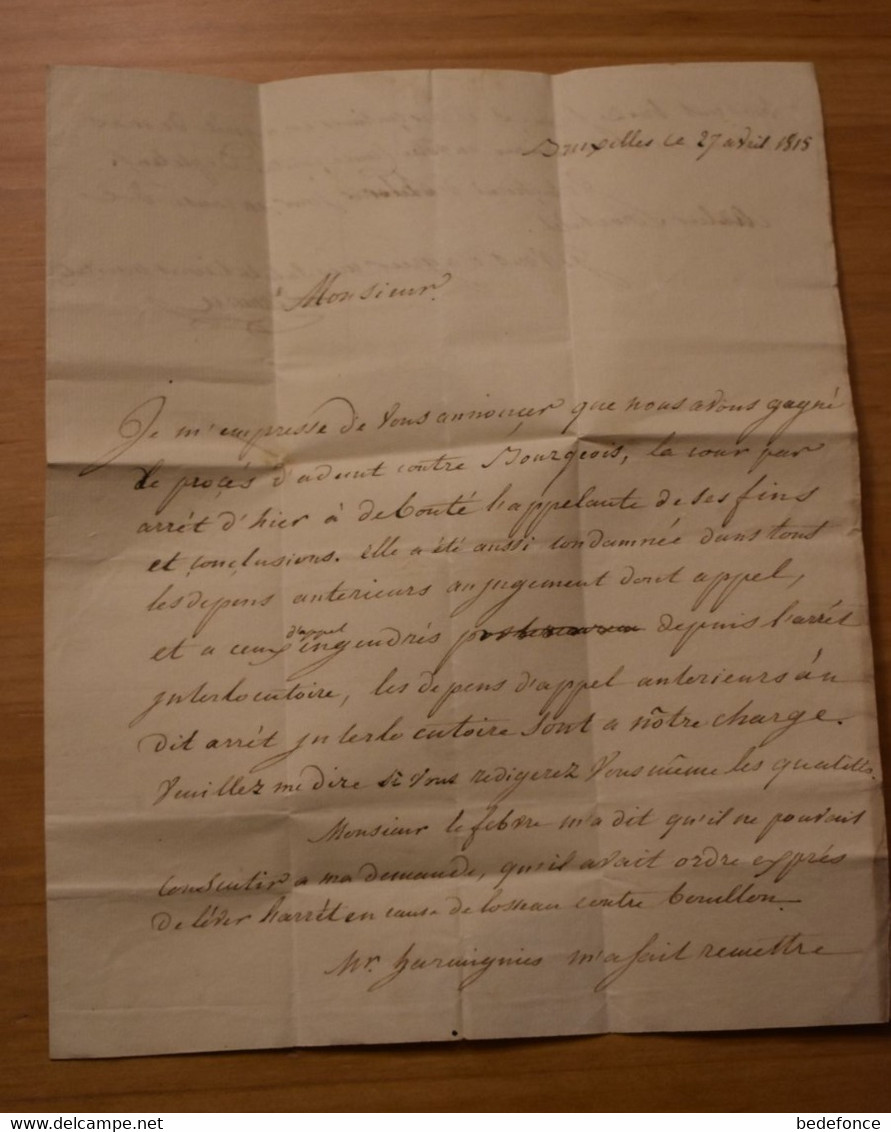 Bruxelles le 27 avril 1815
Monsieur.
Je m'empresse de vous annoncer que nous avons gagné
le procès d'adent contre Bourgeois, la cour par
arrêt d'hier à debouté l'appelante de ses fins
et conclusions. elle a été aussi condamnée dans tous
les depens anterieurs au jugement dont appel,
et a ceux d'appel ingendrés depuis l'arrêt
jnterlocutoire, les depens d'appel anterieurs au
dit arrêt jnterlocutoire sont a nôtre charge.
Veuillez me dire si vous redigerez vous même les qualités.
Monsieur lefebvre m'a dit qu'il ne pouvait
consentir a ma demande, qu'il avait ordre exprès
de léver l'arrêt en cause de losseau contre bouillon.
Mr. harmignies m'a fait remettre
delcampe.net
bedefonce